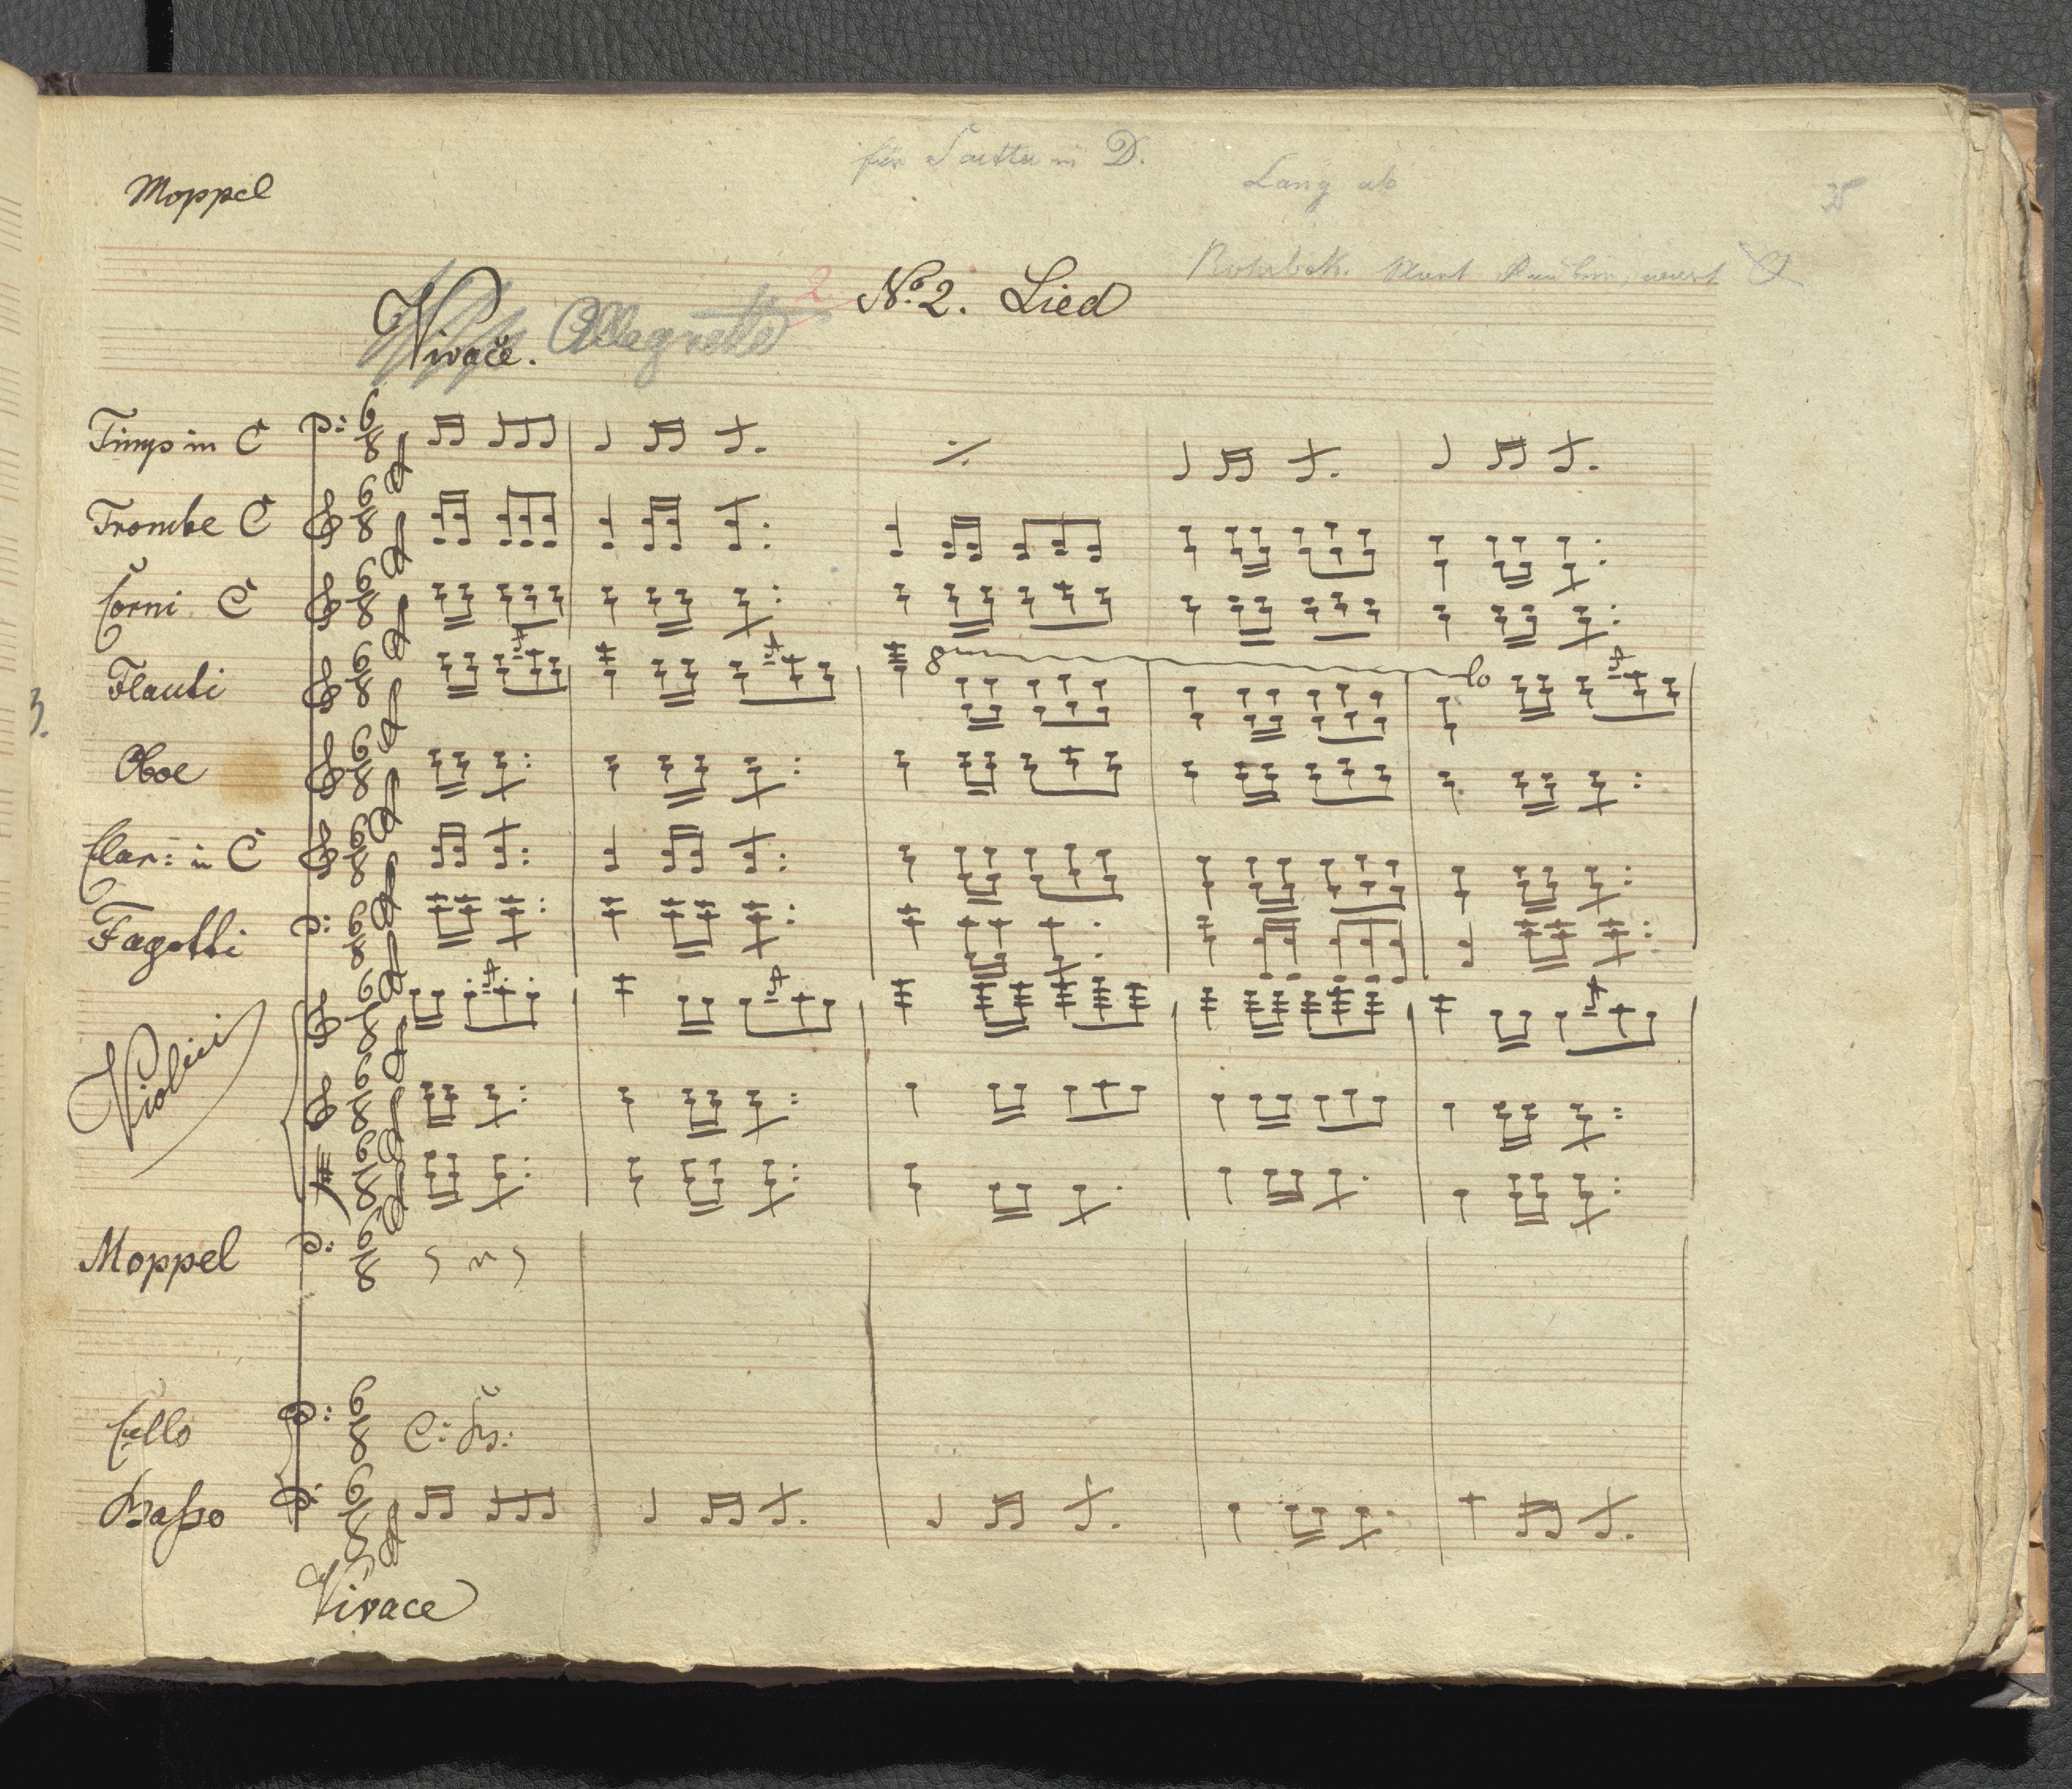 für in D.
Moppel
Lang ab
2 No. 2. Lied
Vivace. Allegretto
Timp in C
Trombe C
Corni C
Flauti 8 lo
3.
Oboe
Clar: in C
Fagotti
Violini
Moppel
Cello C: Bs:
Basso
Vivace